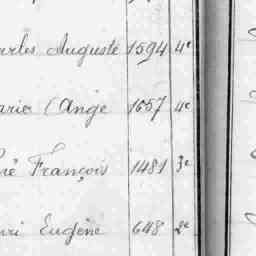 arles Auguste 1594 4e
arie (Ange 1657 4e
né François 1481 3e
nri Eugène 648 2e